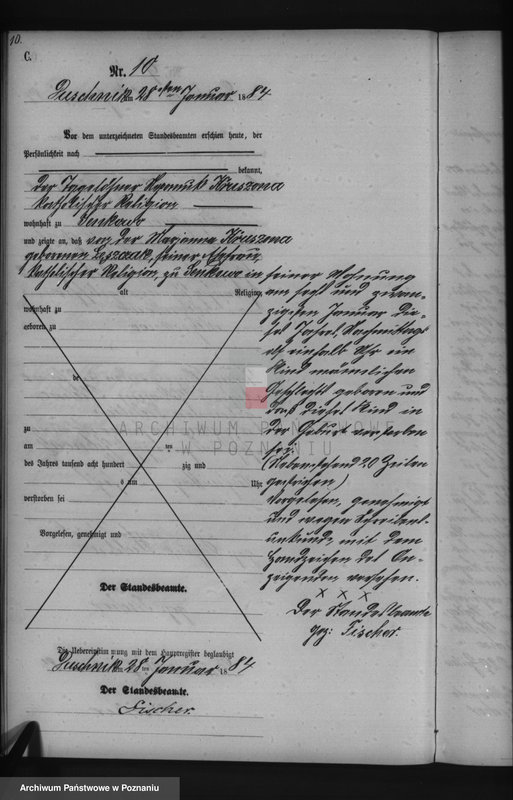 10.
C.
Nr. 10
Duschnik am 28 ten Januar 1884
Vor dem unterzeichneten Standesbeamten erschien heute, der
Persönlichkeit nach
bekannt,
der Tagelöhner
katholischer Religion
wohnhaft zu Senkowo
und zeigte an, daß von der Marjanna
geborenen seiner Ehefrau,
katholischer Religion, zu Senkowo in
alt Religion,
wohnhaft zu
geboren zu
de
zu
am ten
des Jahres tausend acht hundert zig und
s um Uhr
verstorben sei
Vorgelesen, genehmigt und
Der Standesbeamte.
seiner Wohnung
am sechs und zwan-
zigsten Januar die-
ses Jahres, Nachmittags
um Uhr ein
Kind männlichen
Geschlechts geboren und
daß dieses Kind in
der Geburt verstorben
sei.
(Nebenstehend 20 Zeilen
gestrichen)
Vorgelesen, genehmigt
und wegen Schreibens-
unkunde mit dem
Handzeichen des An-
zeigenden versehen.
x x x
Der Standesbeamte
gez: Fischer.
Die Uebereinstimmung mit dem Hauptregister beglaubigt
Duschnik am 28 ten Januar 1884
Der Standesbeamte.
Fischer.
ARCHIWUM PAŃSTWOWE
W POZNANIU
Archiwum Państwowe w Poznaniu